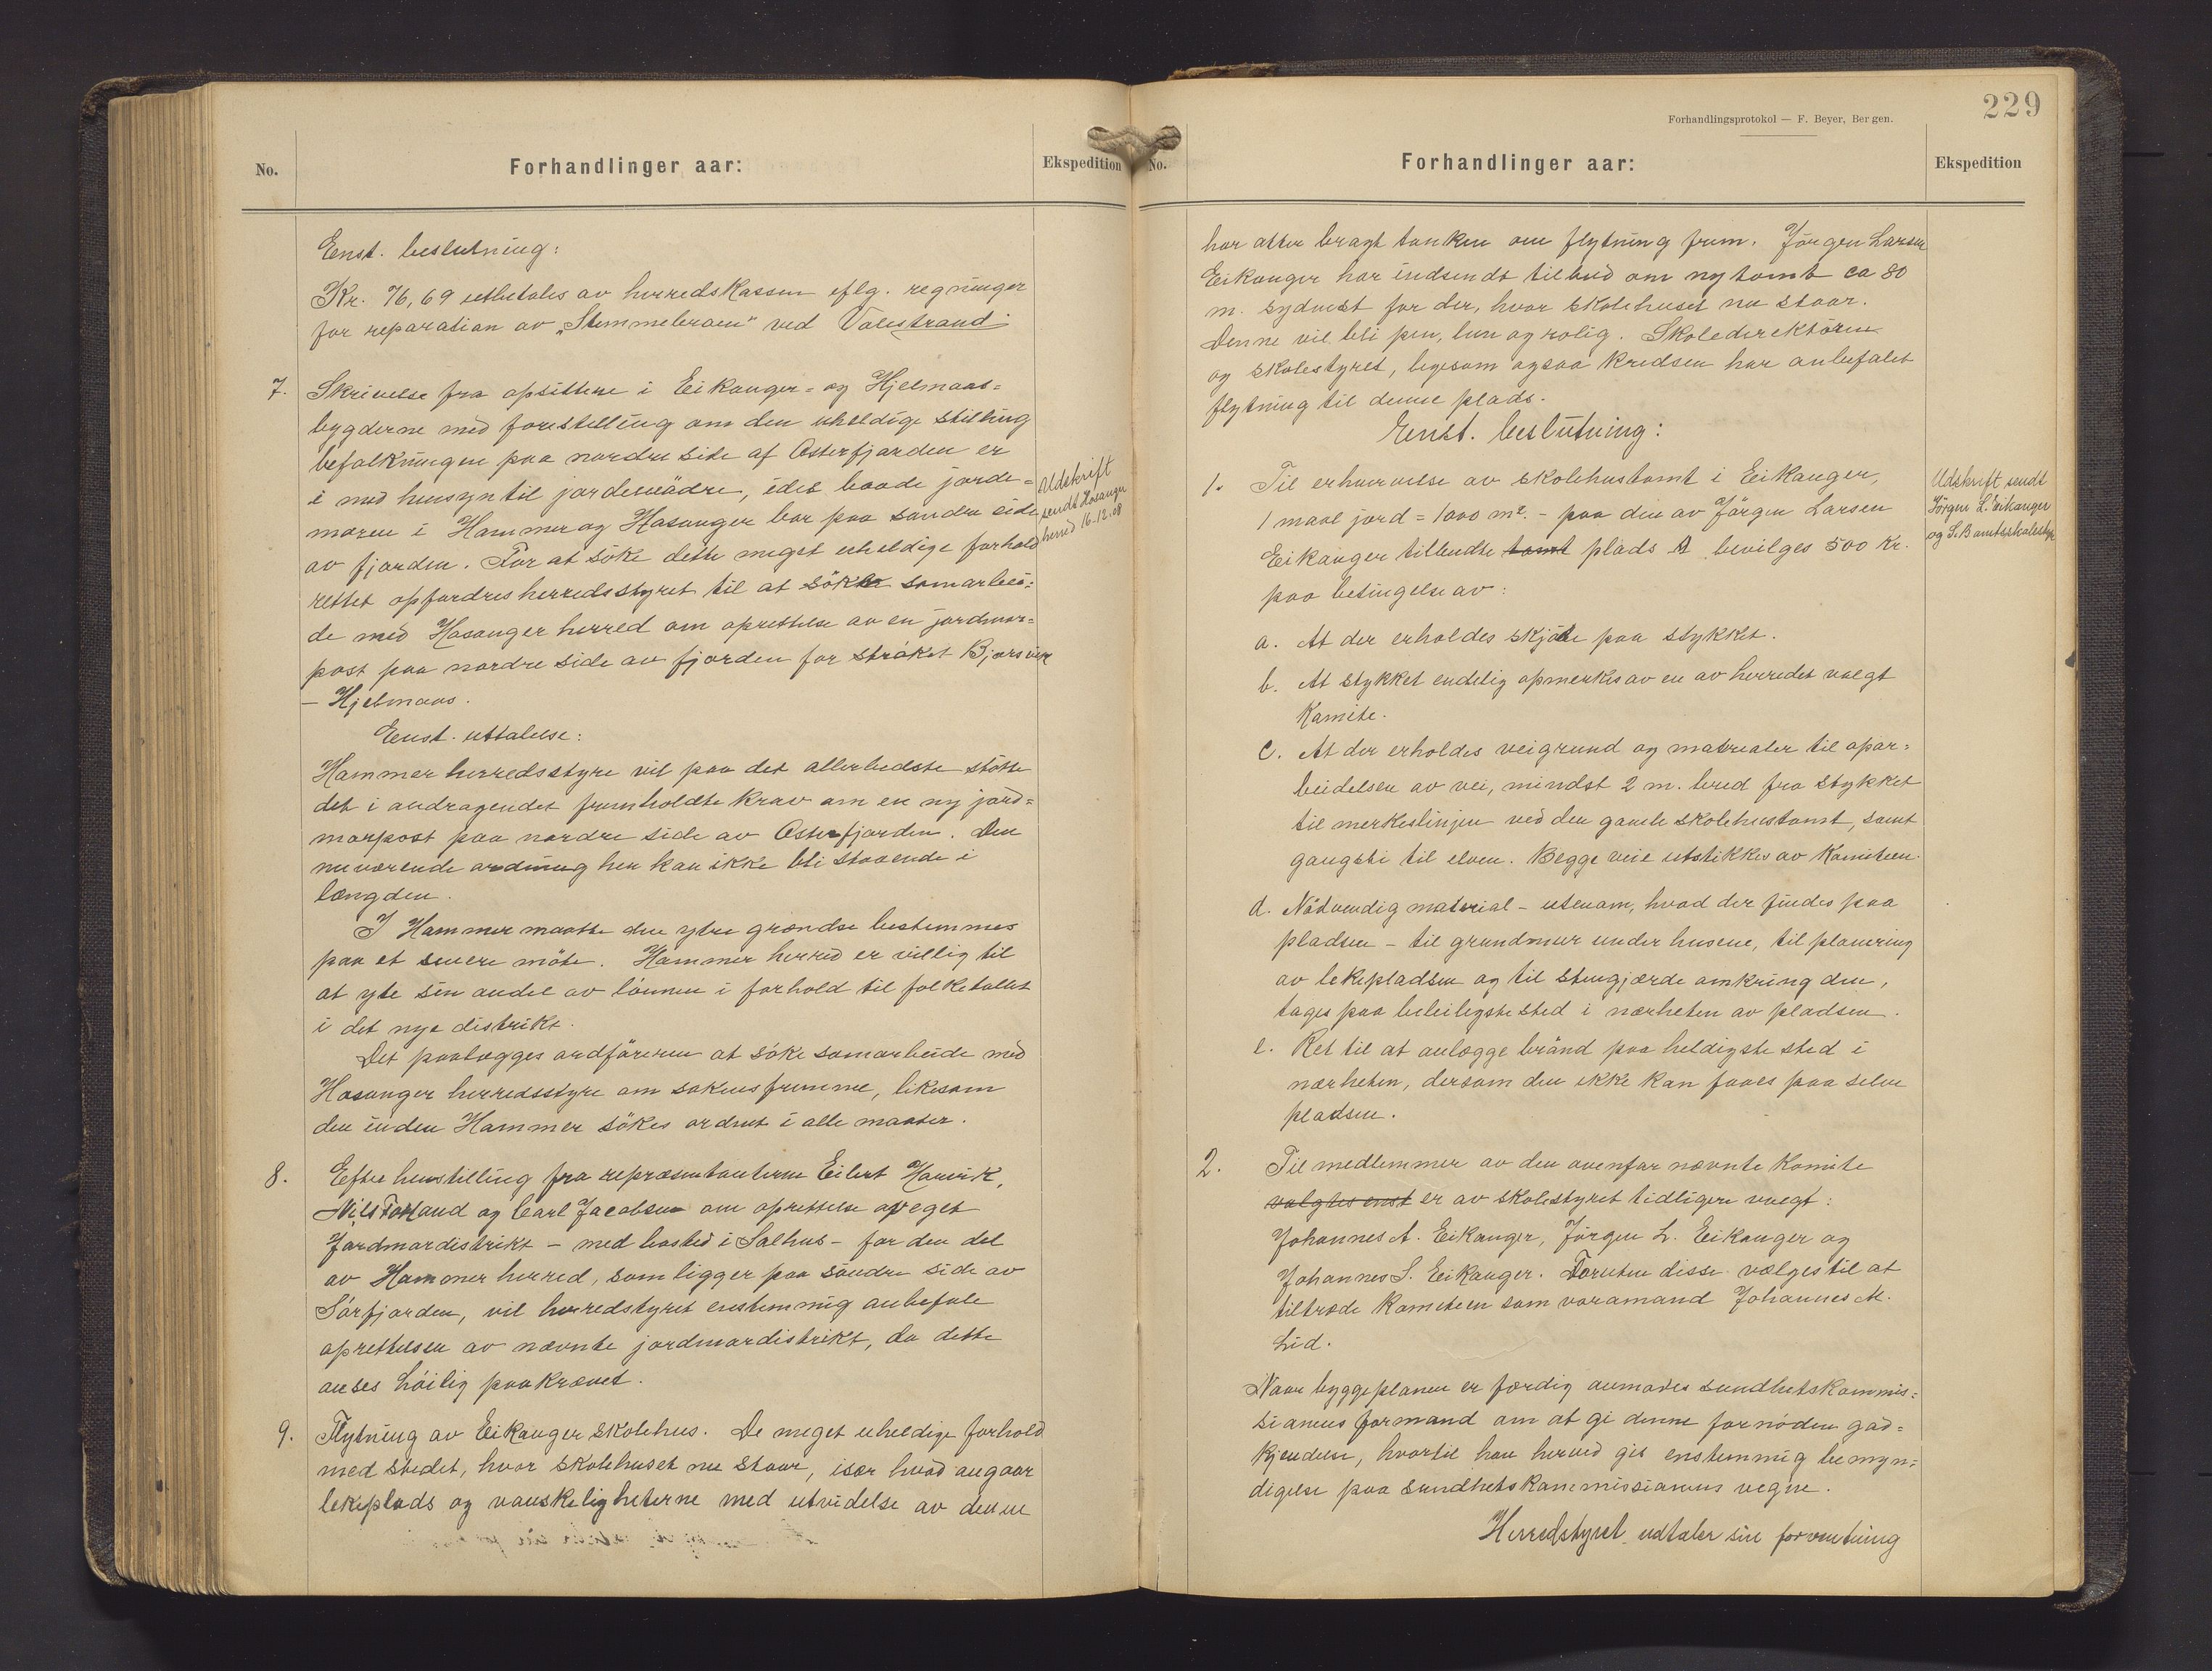 No.
Forhandlinger aar:
Ekspedition
Enst. beslutning:
Kr. 76,69 utbetales av herredskassen iflg. regninger
for reparation av „Stemmebroen" ved Valestrand
7. Skrivelse fra opsittere i Eikanger- og Hjelmaas-
bygderne med forestilling om den uheldige stilling
befolkningen paa nordre side af Osterfjorden er
i med hensyn til jordemödre, idet baade jorde-
moren i Hammer og Hosanger bor paa söndre side
av fjorden. For at söke dette meget uheldige forhold
rettet opfordres herredsstyret til at söke samarbei-
de med Hosanger herred om oprettelse av en jordmor-
post paa nordre side av fjorden for ströket Bjorsvik
- Hjelmaas.
Udskrift
sendt Hosanger
herred 16-12.08
Enst. uttalelse:
Hammer herredsstyre vil paa det allerbedste stötte
det i andragendet fremholdte krav om en ny jord-
morpost paa nordre side av Osterfjorden. Den
nuværende ordning her kan ikke bli staaende i
længden.
I Hammer maatte den ytre grændse bestemmes
paa et senere möte. Hammer herred er villig til
at yte sin andel av lönnen i forhold til folketallet
i det nye distrikt.
Det paalægges ordföreren at söke samarbeide med
Hosanger herredsstyre om sakens fremme, likesom
den inden Hammer sökes ordnet i alle maater.
8. Efter henstilling fra repræsentanterne Eilert Hanvik,
Nils Tofland og Carl Jacobsen om oprettelse af eget
Jordmordistrikt - med bosted i Salhus - for den del
av Hammer herred, som ligger paa söndre side av
Sörfjorden, vil herredstyret enstemmig anbefale
oprettelsen av nævnte jordmordistrikt, da dette
anses höilig paakrævet.
9. Flytning av Eikanger skolehus. De meget uheldige forhold
med stedet, hvor skolehuset nu staar, især hvad angaar
lekeplads og vanskeligheterne med utvidelse av denne
229
Forhandlingsprotokol — F. Beyer, Bergen.
No.
Forhandlinger aar:
Ekspedition
har atter bragt tanken om flytning frem. Jörgen Larsen
Eikanger har indsendt tilbud om ny tomt ca 80
m. sydvest for der, hvor skolehuset nu staar.
Denne vil bli pen, lun og rolig. Skoledirektören
og skolestyret, ligesom ogsaa kredsen har anbefalet
flytning til denne plads.
Enst. beslutning:
1. Til erhvervelse av skolehustomt i Eikanger,
1 maal jord = 1000 m². - paa den av Jörgen Larsen
Eikanger tilbudte tomt plads A bevilges 500 kr.
paa betingelse av:
Udskrift sendt
Jörgen L. Eikanger
og S. B amtsskolestyre
a. At der erholdes skjöte paa stykket.
b. At stykket endelig opmerkes av en av herredet valgt
Komite.
c. At der erholdes veigrund og materialer til opar-
beidelsen av vei, mindst 2 m. bred fra stykket
til merkeslinjen ved den gamle skolehustomt, samt
gangsti til elven. Begge veie utstikkes av Komiteen.
d. Nödvendig material - utenom, hvad der findes paa
pladsen - til grundmur under husene, til planering
av lekepladsen og til stengjærde omkring den,
tages paa beleiligste sted i nærheten av pladsen.
e. Ret til at anlægge brönd paa heldigste sted i
nærheten, dersom den ikke kan faaes paa selve
pladsen.
2. Til medlemmer av den ovenfor nævnte Komite
valgtes enst er av skolestyret tidligere valgt:
Johannes A. Eikanger, Jörgen L. Eikanger og
Johannes S. Eikanger. Foruten disse vælges til at
tiltræde Komiteen som varamand Johannes M.
Lid.
Naar byggeplanen er færdig anmodes sundhetskommis-
sionens formand om at gi denne fornöden god-
kjendelse, hvortil han herved gis enstemmig bemyn-
digelse paa sundhetskommissionens vegne.
Herredstyret udtaler sin forventning